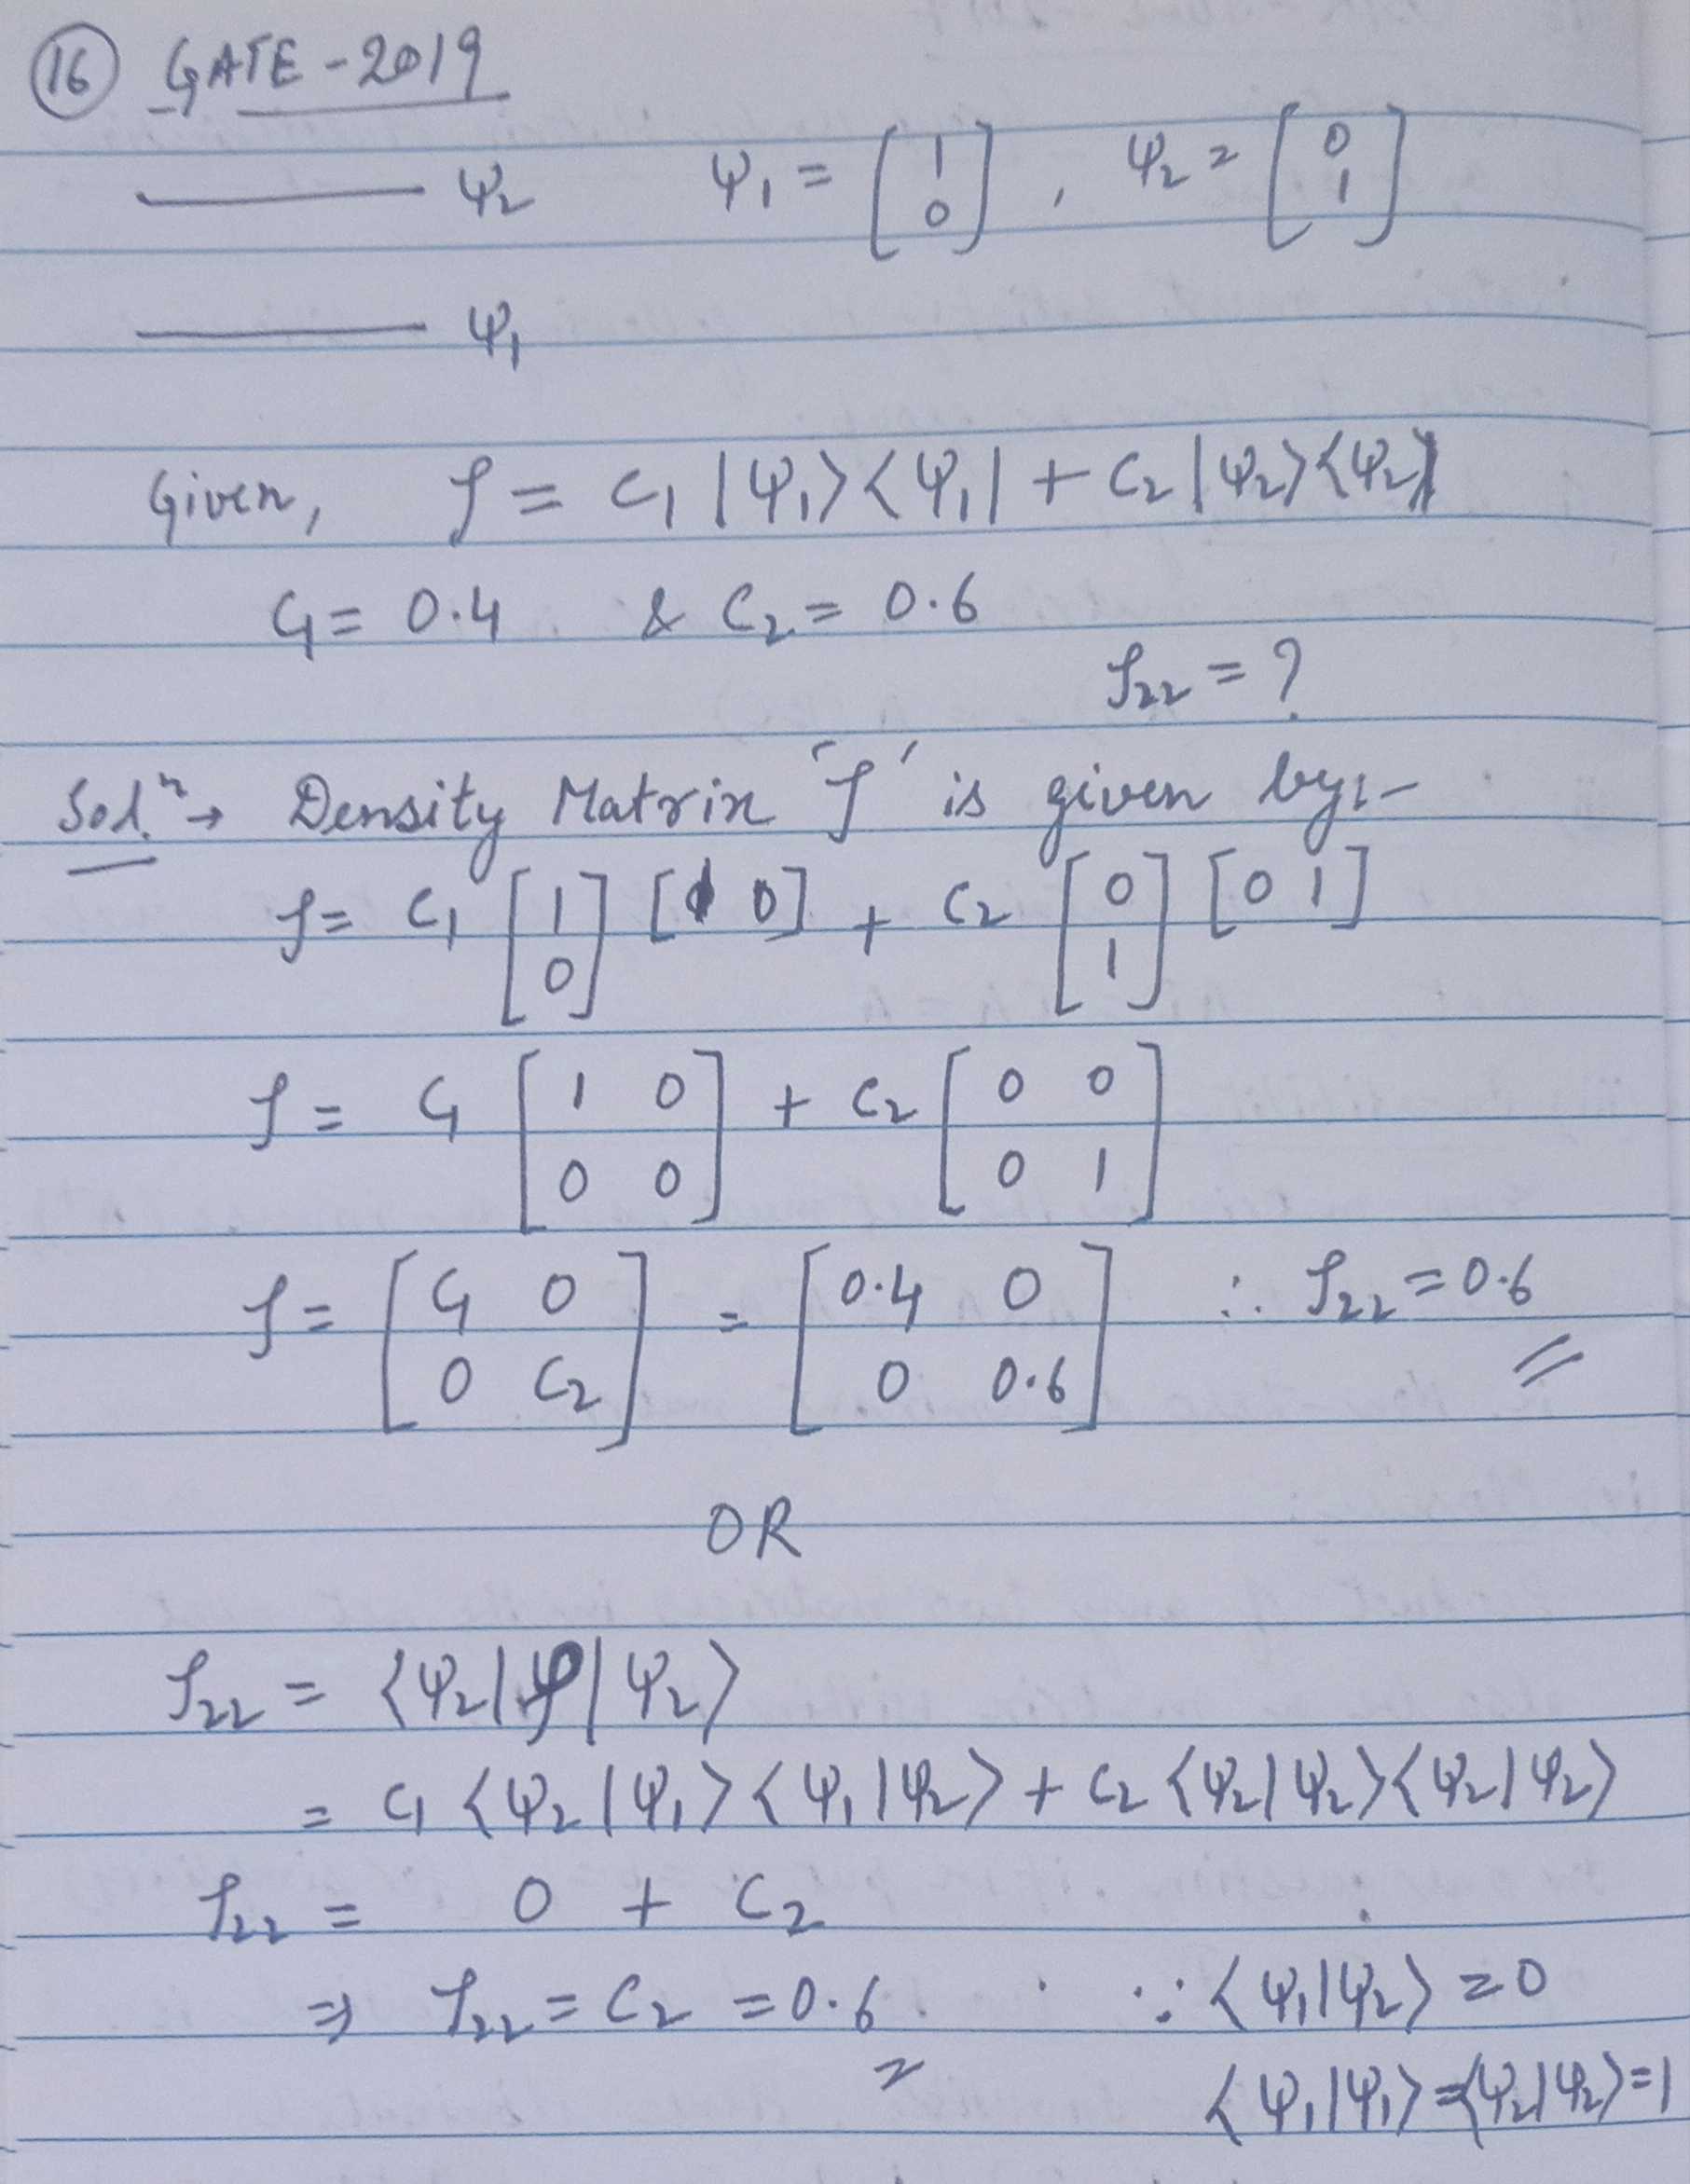 16 GATE-2019
ψ₂ ψ₁ = [1 0], ψ₂ = [0 1]
ψ₁
Given, ρ = C₁ |ψ₁⟩⟨ψ₁| + C₂ |ψ₂⟩⟨ψ₂|
C₁ = 0.4 & C₂ = 0.6
ρ₂₂ = ?
Solⁿ → Density Matrix 'ρ' is given by:-
ρ = C₁ [1 0] [1 0] + C₂ [0 1] [0 1]
ρ = C₁ [1 0 0 0] + C₂ [0 0 0 1]
ρ = [C₁ 0 0 C₂] = [0.4 0 0 0.6] ∴ ρ₂₂ = 0.6
OR
ρ₂₂ = ⟨ψ₂|ρ|ψ₂⟩
= C₁ ⟨ψ₂|ψ₁⟩⟨ψ₁|ψ₂⟩ + C₂ ⟨ψ₂|ψ₂⟩⟨ψ₂|ψ₂⟩
ρ₂₂ = 0 + C₂
⇒ ρ₂₂ = C₂ = 0.6. ∵ ⟨ψ₁|ψ₂⟩ = 0
⟨ψ₁|ψ₁⟩ = ⟨ψ₂|ψ₂⟩ = 1